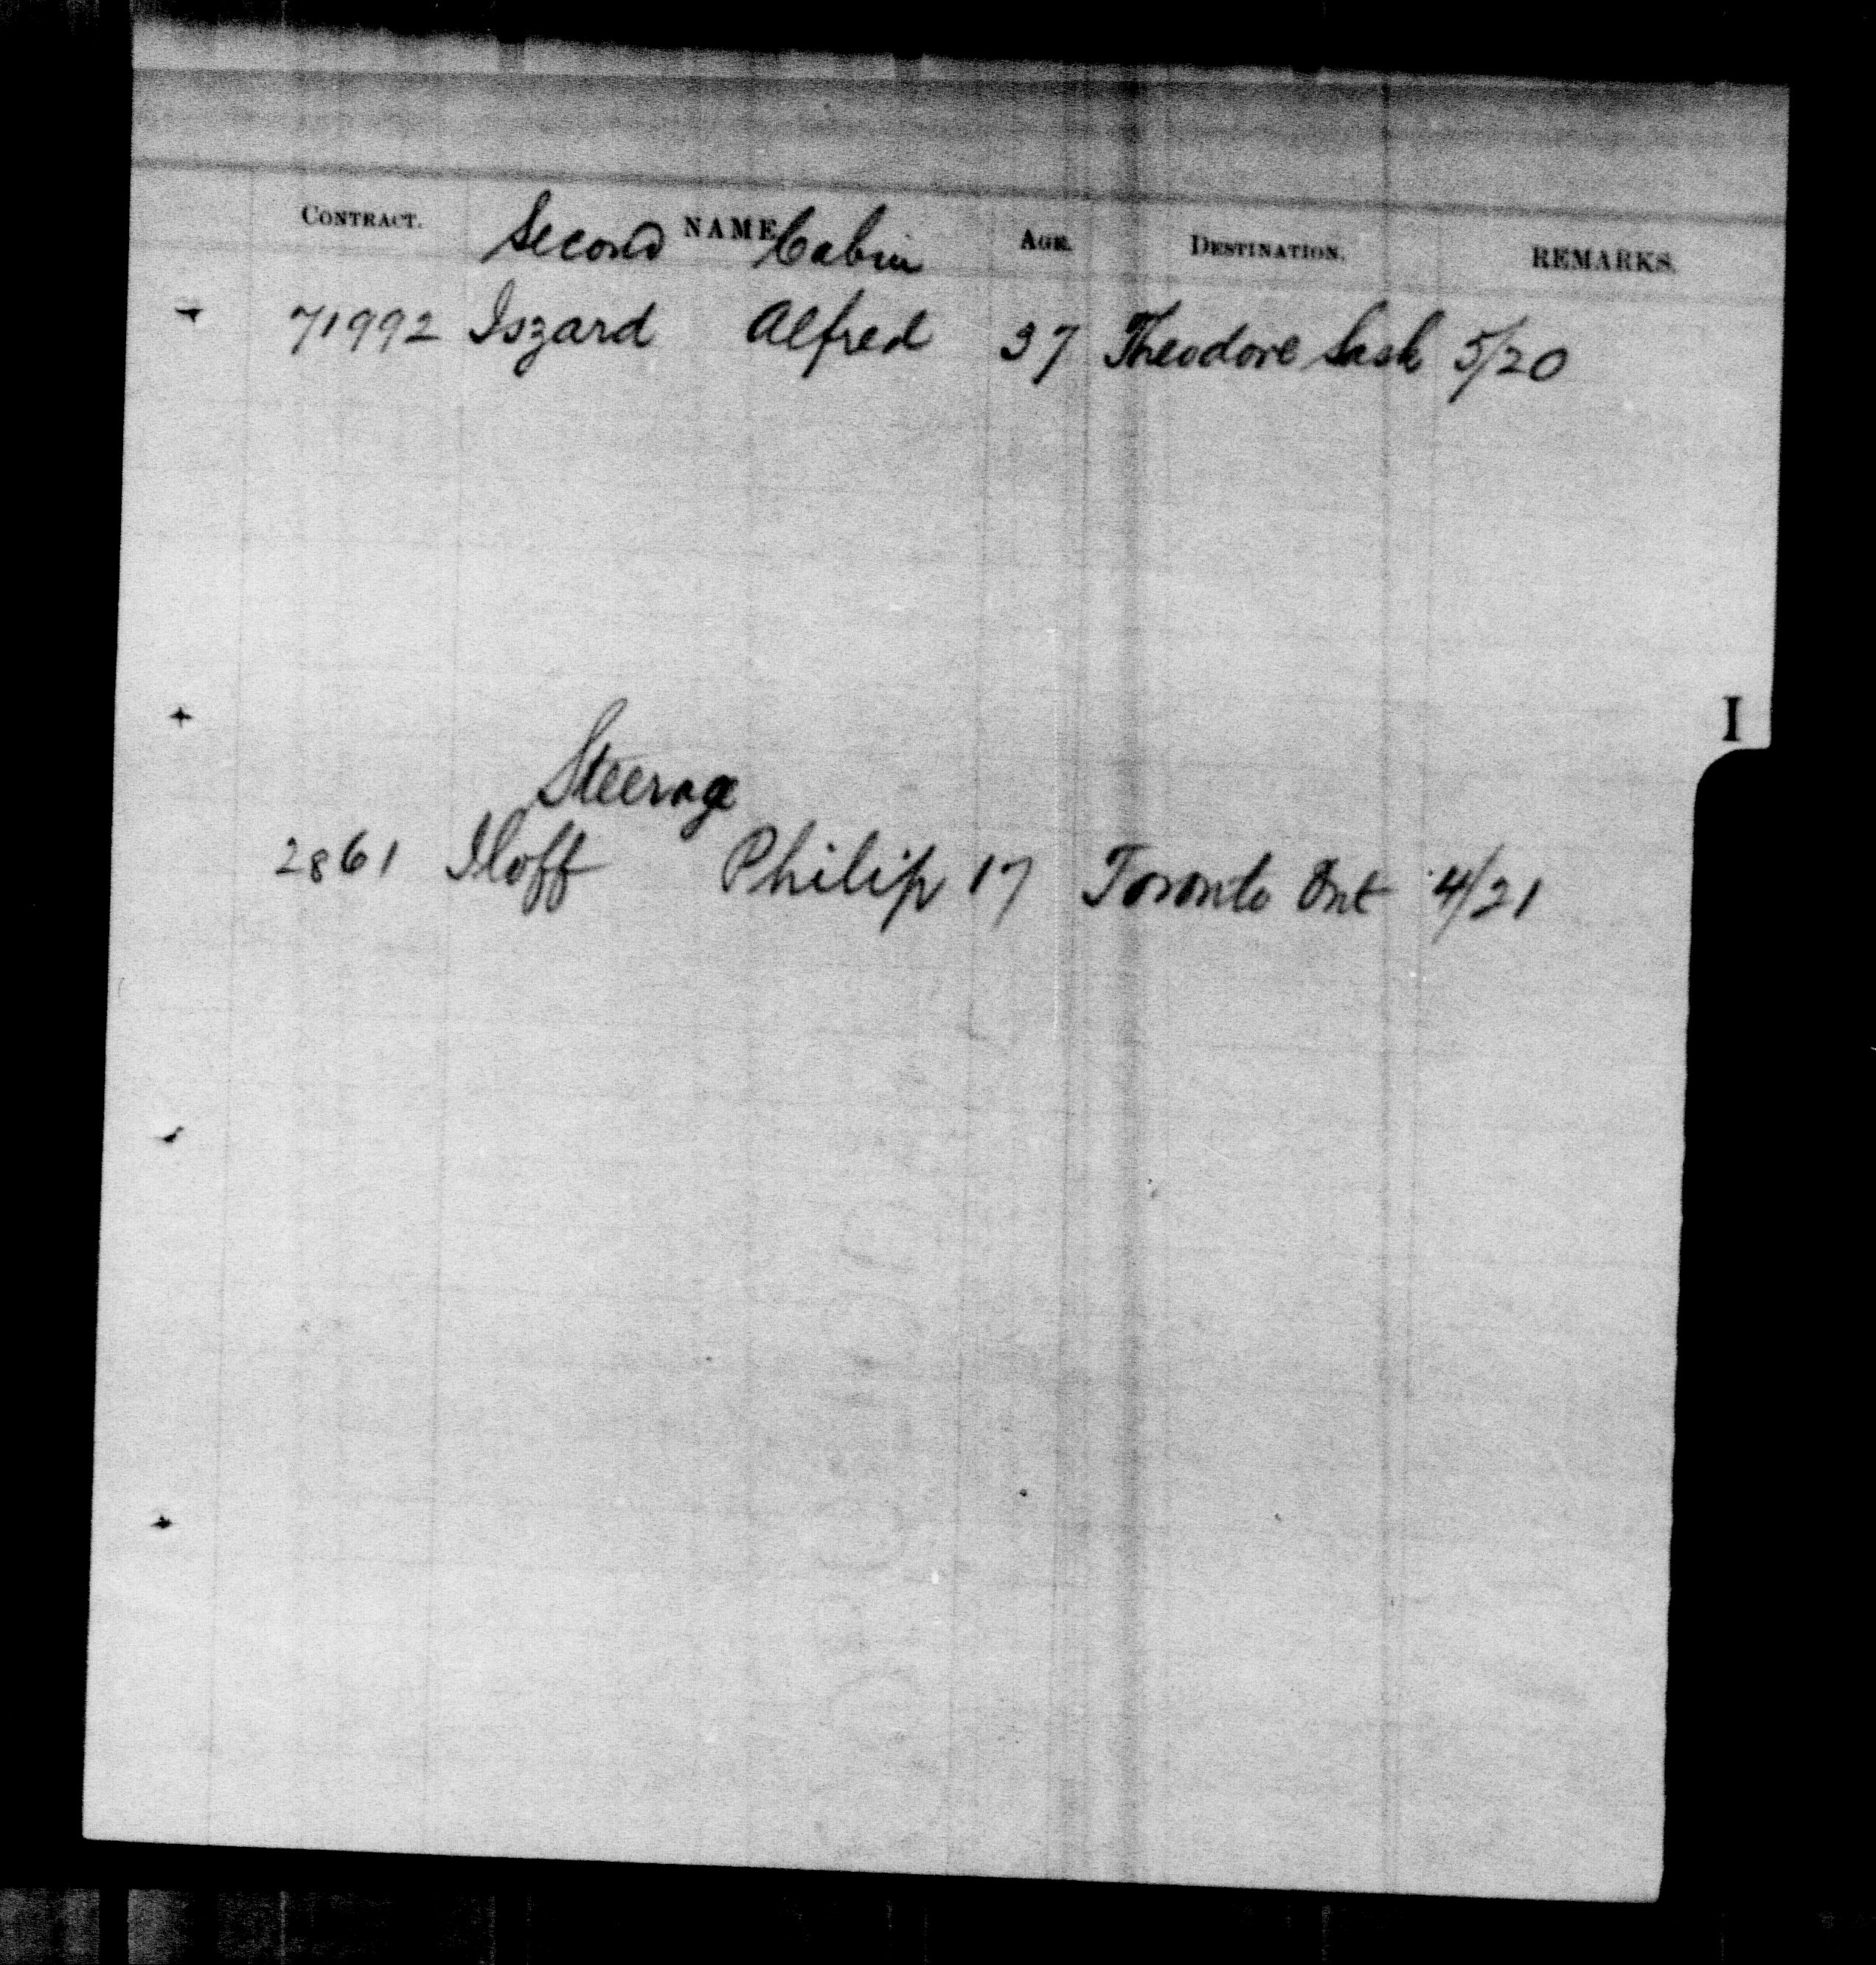 CONTRACT. NAME AGE. DESTINATION. REMARKS.
Second Cabin
71992 Iszard Alfred 37 Theodore Sask 5/20
I
Steerage
2861 Iloff Philip 17 Toronto Ont 4/21